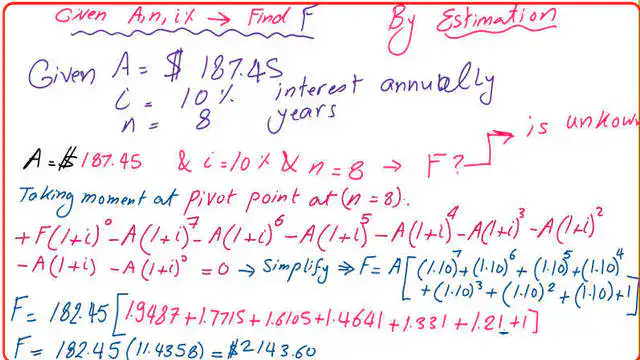 Given A, n, i% → Find F By Estimation
Given A = $ 187.45
i = 10% interest annually
n = 8 years
A = $187.45 & i = 10% & n = 8 → F? is unkow
Taking moment at pivot point at (n = 8).
+F(1+i)^0 -A(1+i)^7 -A(1+i)^6 -A(1+i)^5 -A(1+i)^4 -A(1+i)^3 -A(1+i)^2
-A(1+i) -A(1+i)^0 = 0 → Simplify ⇒ F = A[(1.10)^7 + (1.10)^6 + (1.10)^5 + (1.10)^4
+(1.10)^3 + (1.10)^2 + (1.10) + 1]
F = 182.45 [1.9487 + 1.7715 + 1.6105 + 1.4641 + 1.331 + 1.21 + 1]
F = 182.45 (11.4358) = $2143.60